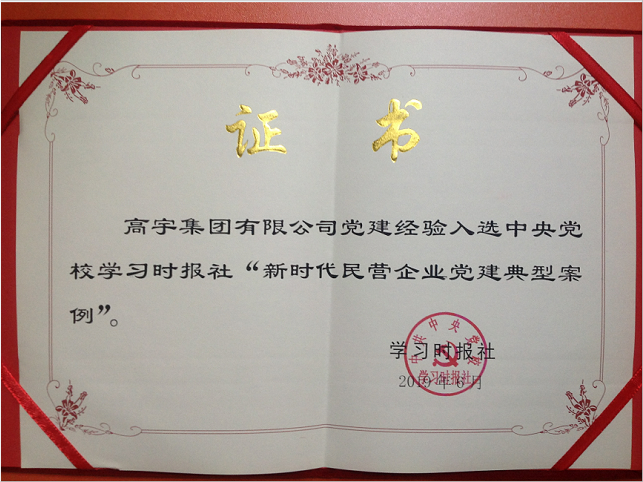 证 书
高宇集团有限公司党建经验入选中央党
校学习时报社“新时代民营企业党建典型案
例”。
中共中央党校
学习时报社
学习时报社
2019年6月